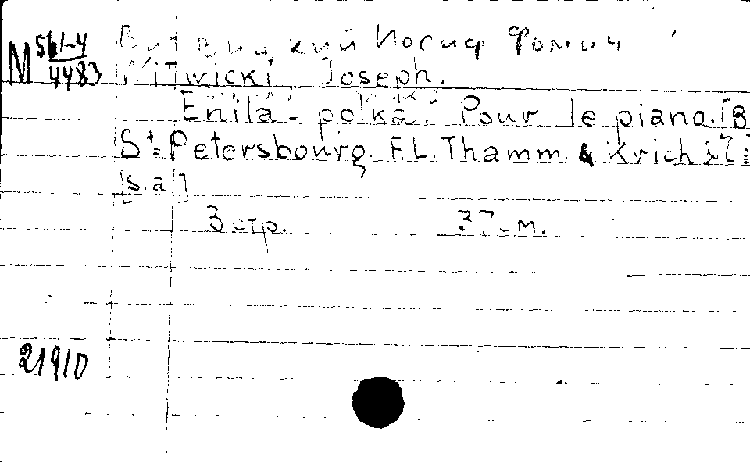 М 561-4/4483
Витвицкий Иосиф Фомич
Witwicki, Joseph.
Enila-polka. Pour le piano. [B
St. Petersbourg. F.L. Thamm &
[s.a.]
3 стр. 37 см.
21910